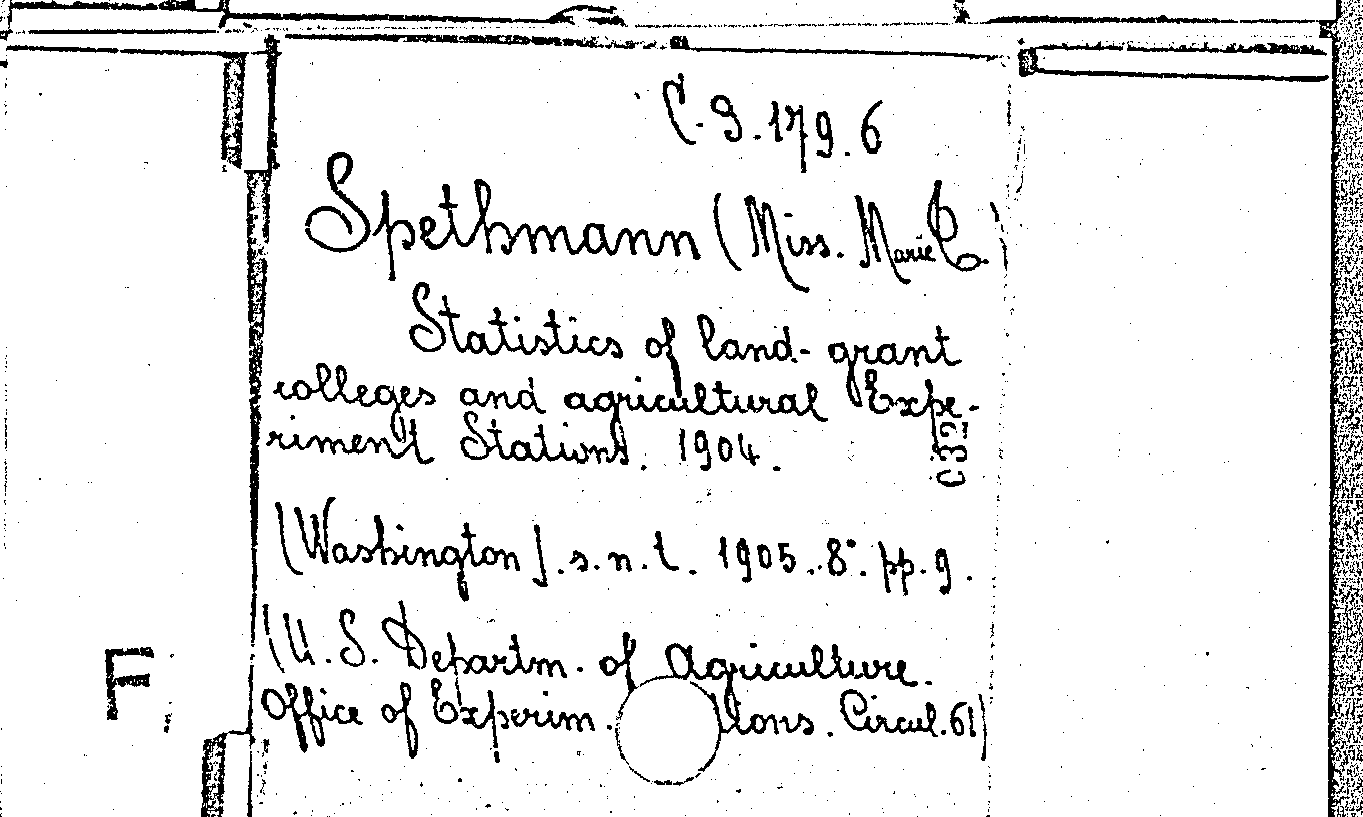 C.9.179.6
Spethmann (Miss. Marie C.)
Statistics of land-grant
colleges and agricultural Expe-
riment Stations. 1904.
C32
(Washington]. s. n. t. 1905. 8°. pp. 9.
(U. S. Departm. of Agriculture.
Office of Experim. tions. Circul. 61)
F